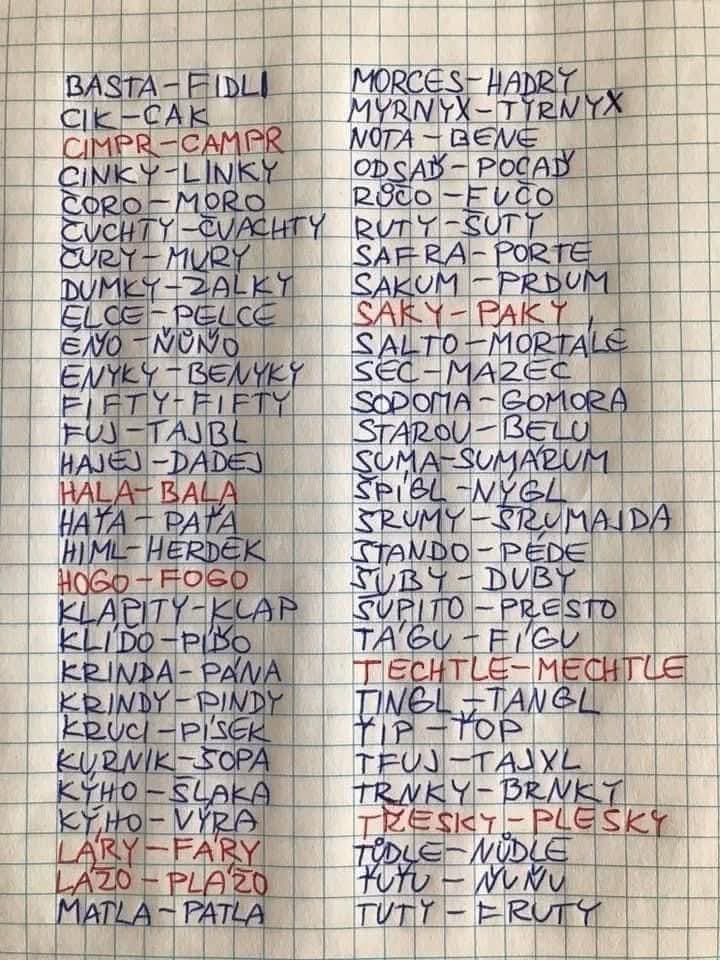 BASTA-FIDLI
CIK-CAK
CIMPR-CAMPR
ČINKY-LINKY
ČORO-MORO
ČUCHTY-ČVACHTY
ČURY-MURY
DUMKY-ŽALKY
ELCE-PELCE
EŇO-ŇŮŇO
ENYKY-BENYKY
FIFTY-FIFTY
FUJ-TAJBL
HAJEJ-DADEJ
HALA-BALA
HAŤA-PAŤA
HIML-HERDEK
HOGO-FOGO
KLAPITY-KLAP
KLÍDO-PÍĎO
KRINDA-PÁNA
KRINDY-PINDY
KRUCI-PÍSEK
KURNIK-ŠOPA
KÝHO-ŠLAKA
KÝHO-VÝRA
LÁRY-FÁRY
LÁŽO-PLÁŽO
MATLA-PATLA
MORCES-HADRY
MYRNYX-TYRNYX
NOTA-BENE
ODSAĎ-POCAĎ
RŮČO-FUČO
RUTY-ŠUTY
SAFRA-PORTE
SAKUM-PRDUM
SAKY-PAKY
SALTO-MORTÁLE
SEC-MAZEC
SODOMA-GOMORA
STAROU-BELU
SUMA-SUMÁRUM
ŠPÍGL-NÝGL
ŠRUMY-ŠRUMAJDA
ŠTANDO-PÉDE
ŠUBY-DUBY
ŠUPITO-PRESTO
TÁGU-FÍGU
TECHTLE-MECHTLE
TINGL-TANGL
ŤIP-ŤOP
TFUJ-TAJXL
TRNKY-BRNKY
TŘESKY-PLESKY
TŮDLE-NŮDLE
ŤUŤU-ŇUŇU
TUTY-FRUTY